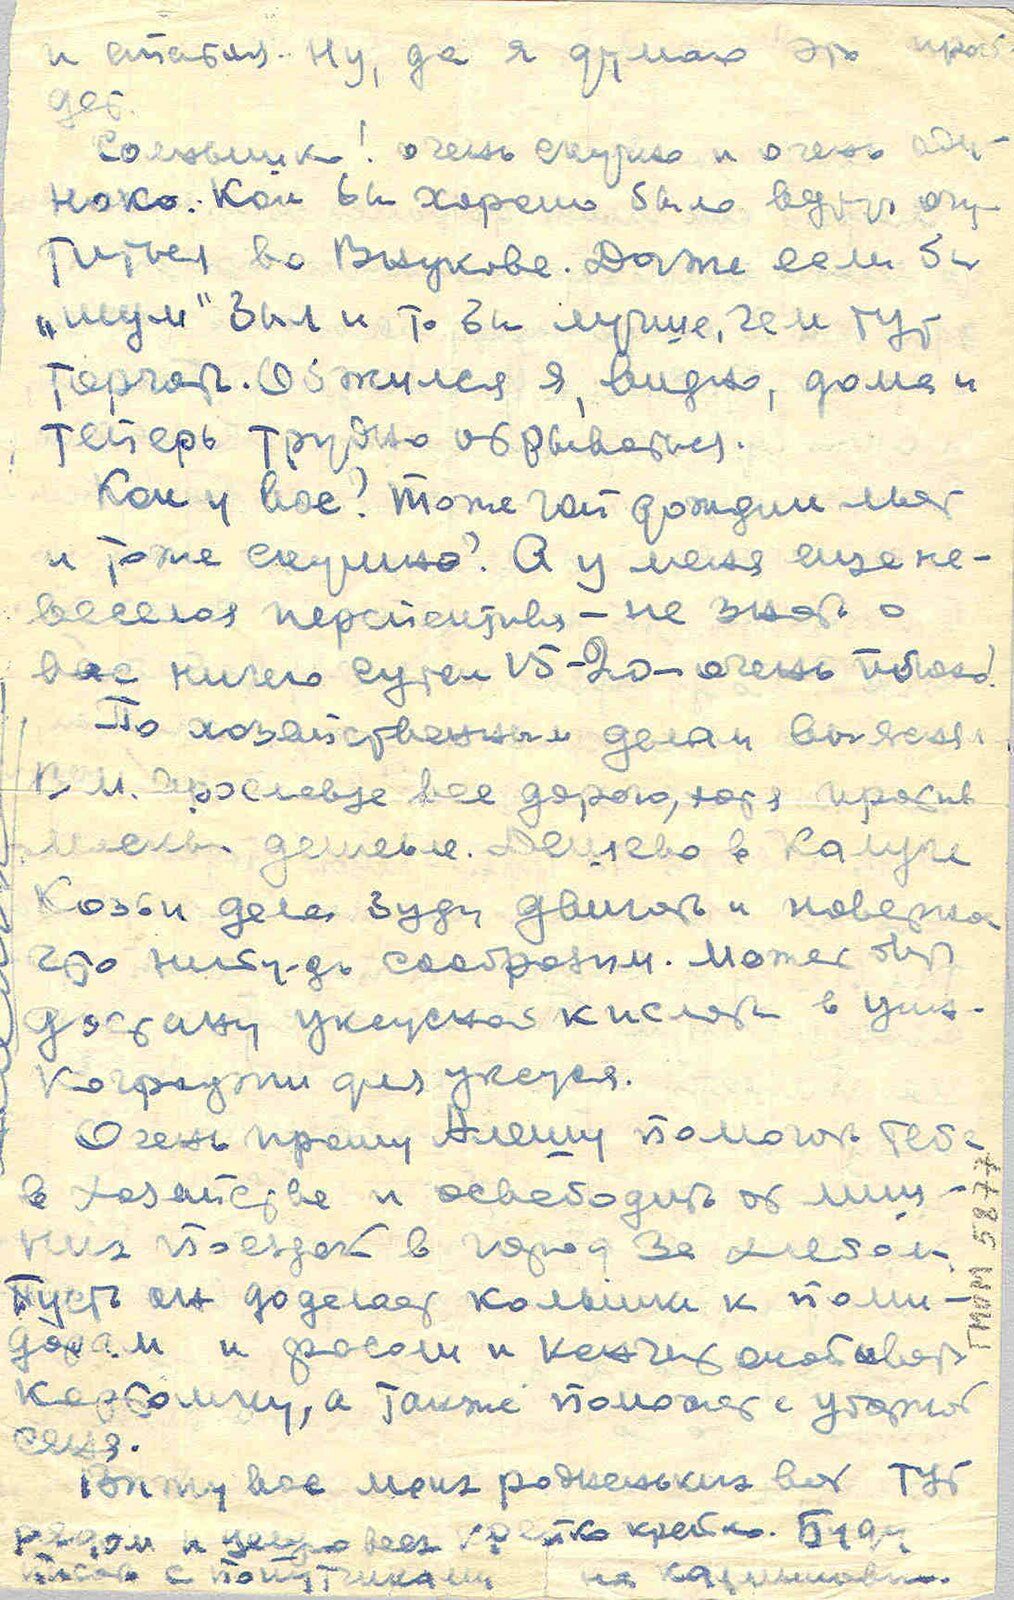 и статья. Ну, да я думаю это прой-
дет.
Солнышко! очень скучно и очень оди-
ноко. Как бы хорошо было вдруг очу-
титься во Внукове. Даже если бы
„шум" был и то бы лучше, чем тут
торчать. Обжился я, видно, дома и
теперь трудно отрываться.
Как у вас? Тоже дожди льют
и тоже скучно? А у меня еще не-
веселая перспектива – не знать о
вас ничего суток 15-20 – очень
По хозяйственным делам
В М. Ярославце все дорого, хотя против
Москвы дешевле. Дешево в Калуге
Козьи дела буду двигать и наверно
что нибудь сообразим. Может быть
достану уксусной кислоты в
для уксуса.
Очень прошу Алешу помогать тебе
в хозяйстве и освободить от лиш-
них поездок в город за хлебом,
Пусть он доделает колышки к поми-
дорам и фасоли и кончит окапывать
картошку, а также поможет с уборкой
сена.
Вижу вас моих родненьких вот тут
рядом и целую всех крепко крепко. Буду
писать с попутчиками на
ГМИМ 5877